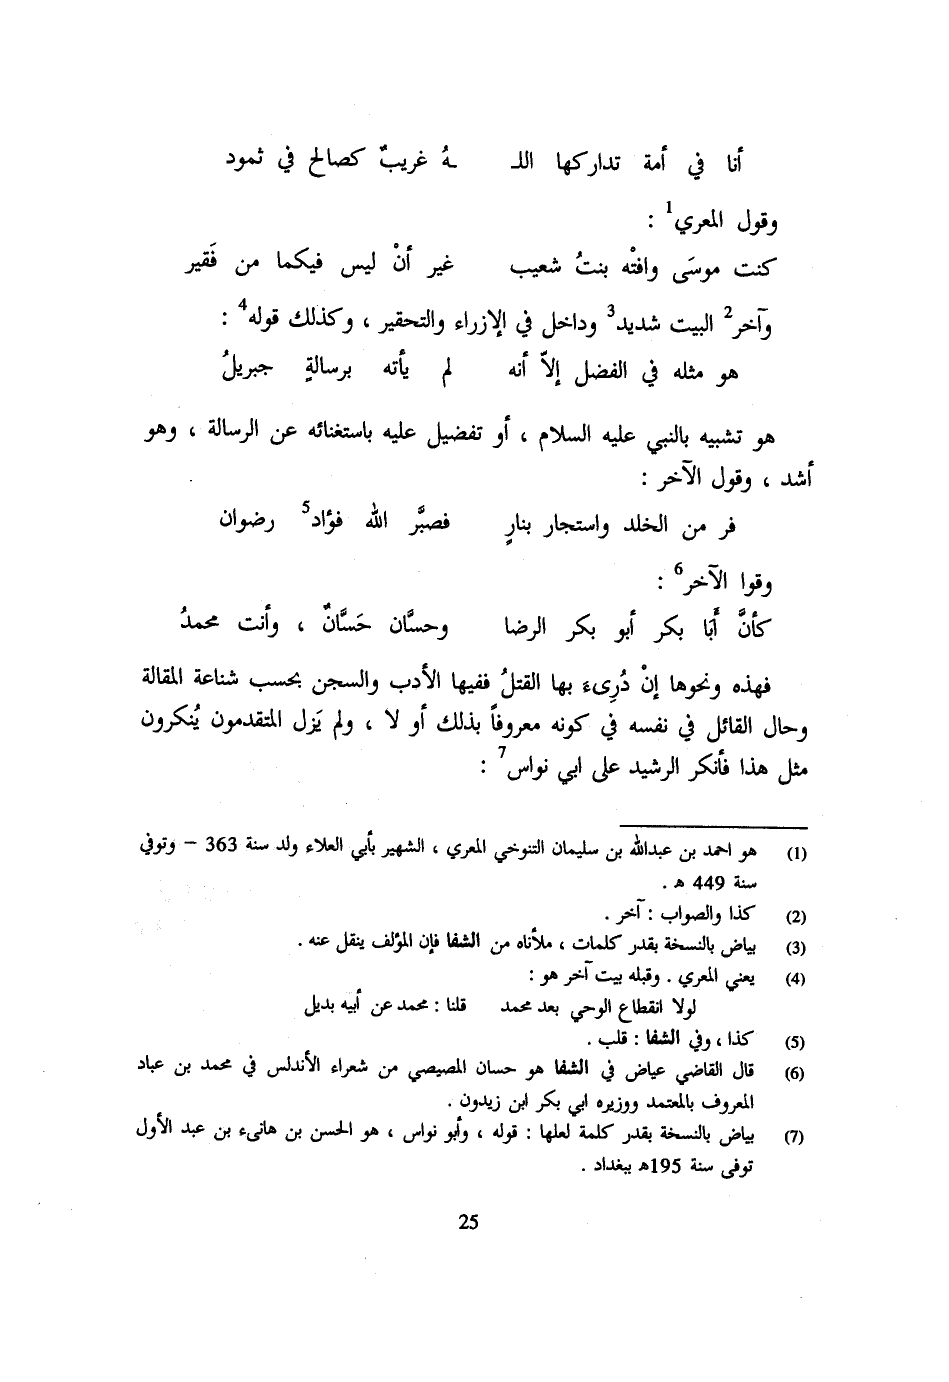 أنا في أمة تداركها اللـ ـهُ غريبٌ كصالح في ثمود
وقول المعري1 :
كنت موسَى وافتْه بنتُ شعيب غير أنْ ليس فيكما من فَقير
وآخر2 البيت شديد3 وداخل في الإزراء والتحقير ، وكذلك قوله4 :
هو مثله في الفضل إلاّ أنه لم يأته برسالةٍ جبريلُ
هو تشبيه بالنبي عليه السلام ، أو تفضيل عليه باستغنائه عن الرسالة ، وهو
أشد ، وقول الآخر :
فر من الخلد واستجار بنارٍ فصبَّر الله فؤاد5 رضوان
وقوا الآخر6 :
كأنَّ أَبَا بكر أبو بكر الرضا وحسَّان حَسَّانٌ ، وأنت محمدُ
فهذه ونحوها إنْ دُرِىءَ بها القتلُ ففيها الأدب والسجن بحسب شناعة المقالة
وحال القائل في نفسه في كونه معروفاً بذلك أو لا ، ولم يَزل المتقدمون يُنكرون
مثل هذا فأنكر الرشيد على ابي نواس7 :
(1) هو احمد بن عبدالله بن سليمان التنوخي المعري ، الشهير بأبي العلاء ولد سنة 363 – وتوفي
سنة 449 هـ .
(2) كذا والصواب : آخر .
(3) بياض بالنسخة بقدر كلمات ، ملأناه من الشفا فإن المؤلف ينقل عنه .
(4) يعني المعري . وقبله بيت آخر هو :
لولا انقطاع الوحي بعد محمد قلنا : محمد عن أبيه بديل
(5) كذا ، وفي الشفا : قلب .
(6) قال القاضي عياض في الشفا هو حسان المصيصي من شعراء الأندلس في محمد بن عباد
المعروف بالمعتمد ووزيره ابي بكر ابن زيدون .
(7) بياض بالنسخة بقدر كلمة لعلها : قوله ، وأبو نواس ، هو الحسن بن هانىء بن عبد الأول
توفى سنة 195هـ ببغداد .
25